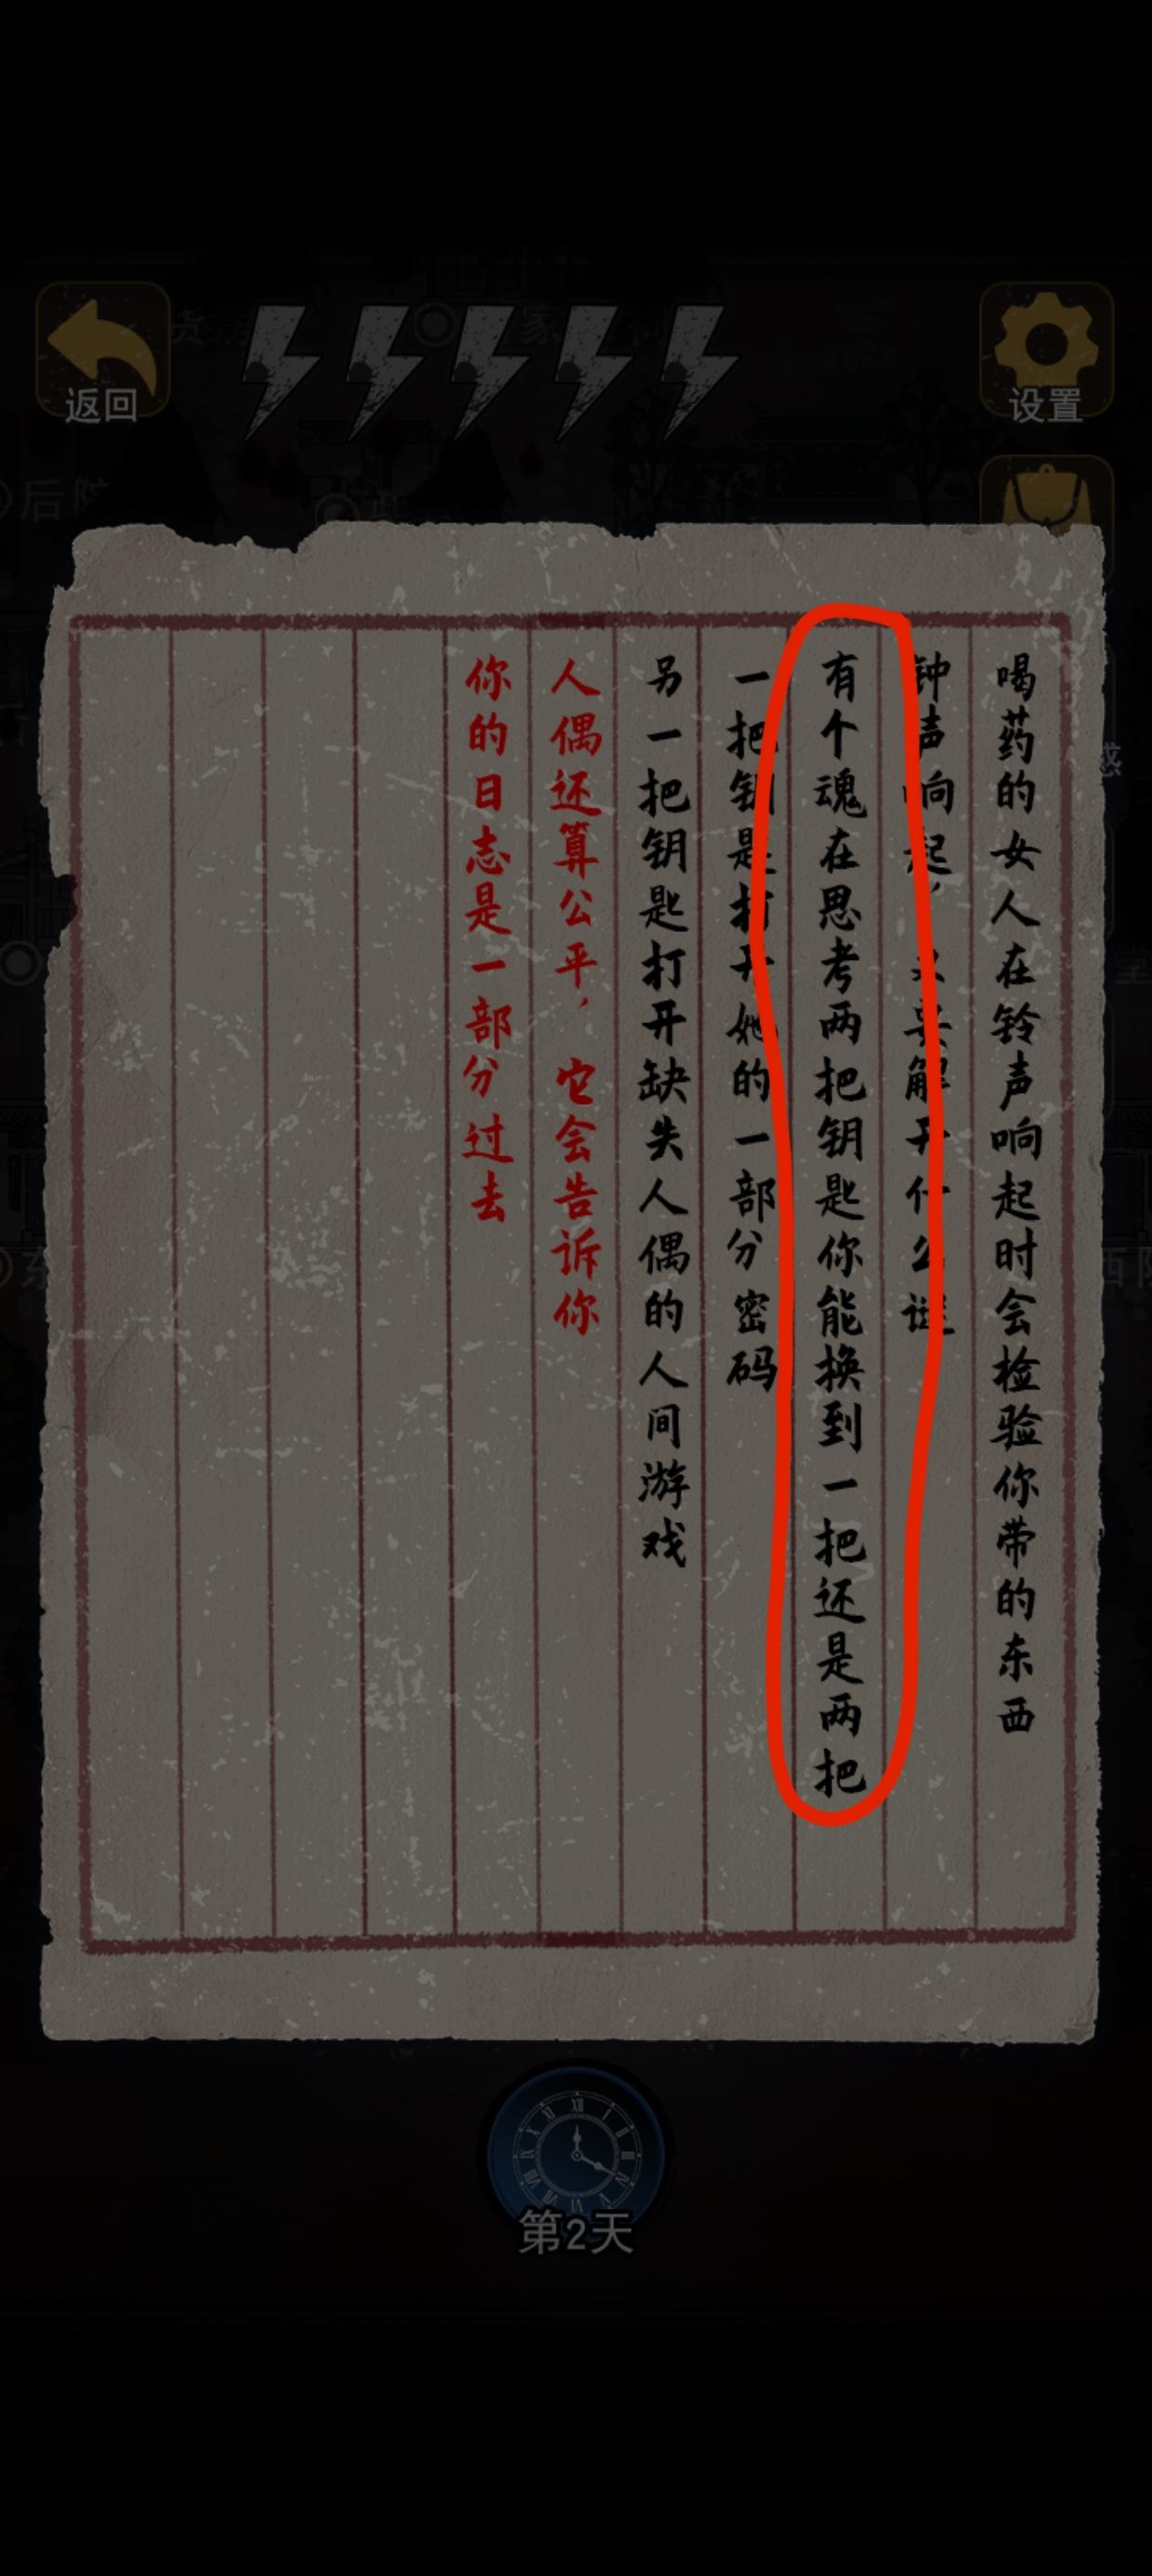 返回
设置
后院
喝药的女人在铃声响起时会检验你带的东西
钟声响起，又要解开什么谜
有个魂在思考两把钥匙你能换到一把还是两把
一把钥是打开她的一部分密码
另一把钥匙打开缺失人偶的人间游戏
人偶还算公平，它会告诉你
你的日志是一部分过去
第2天